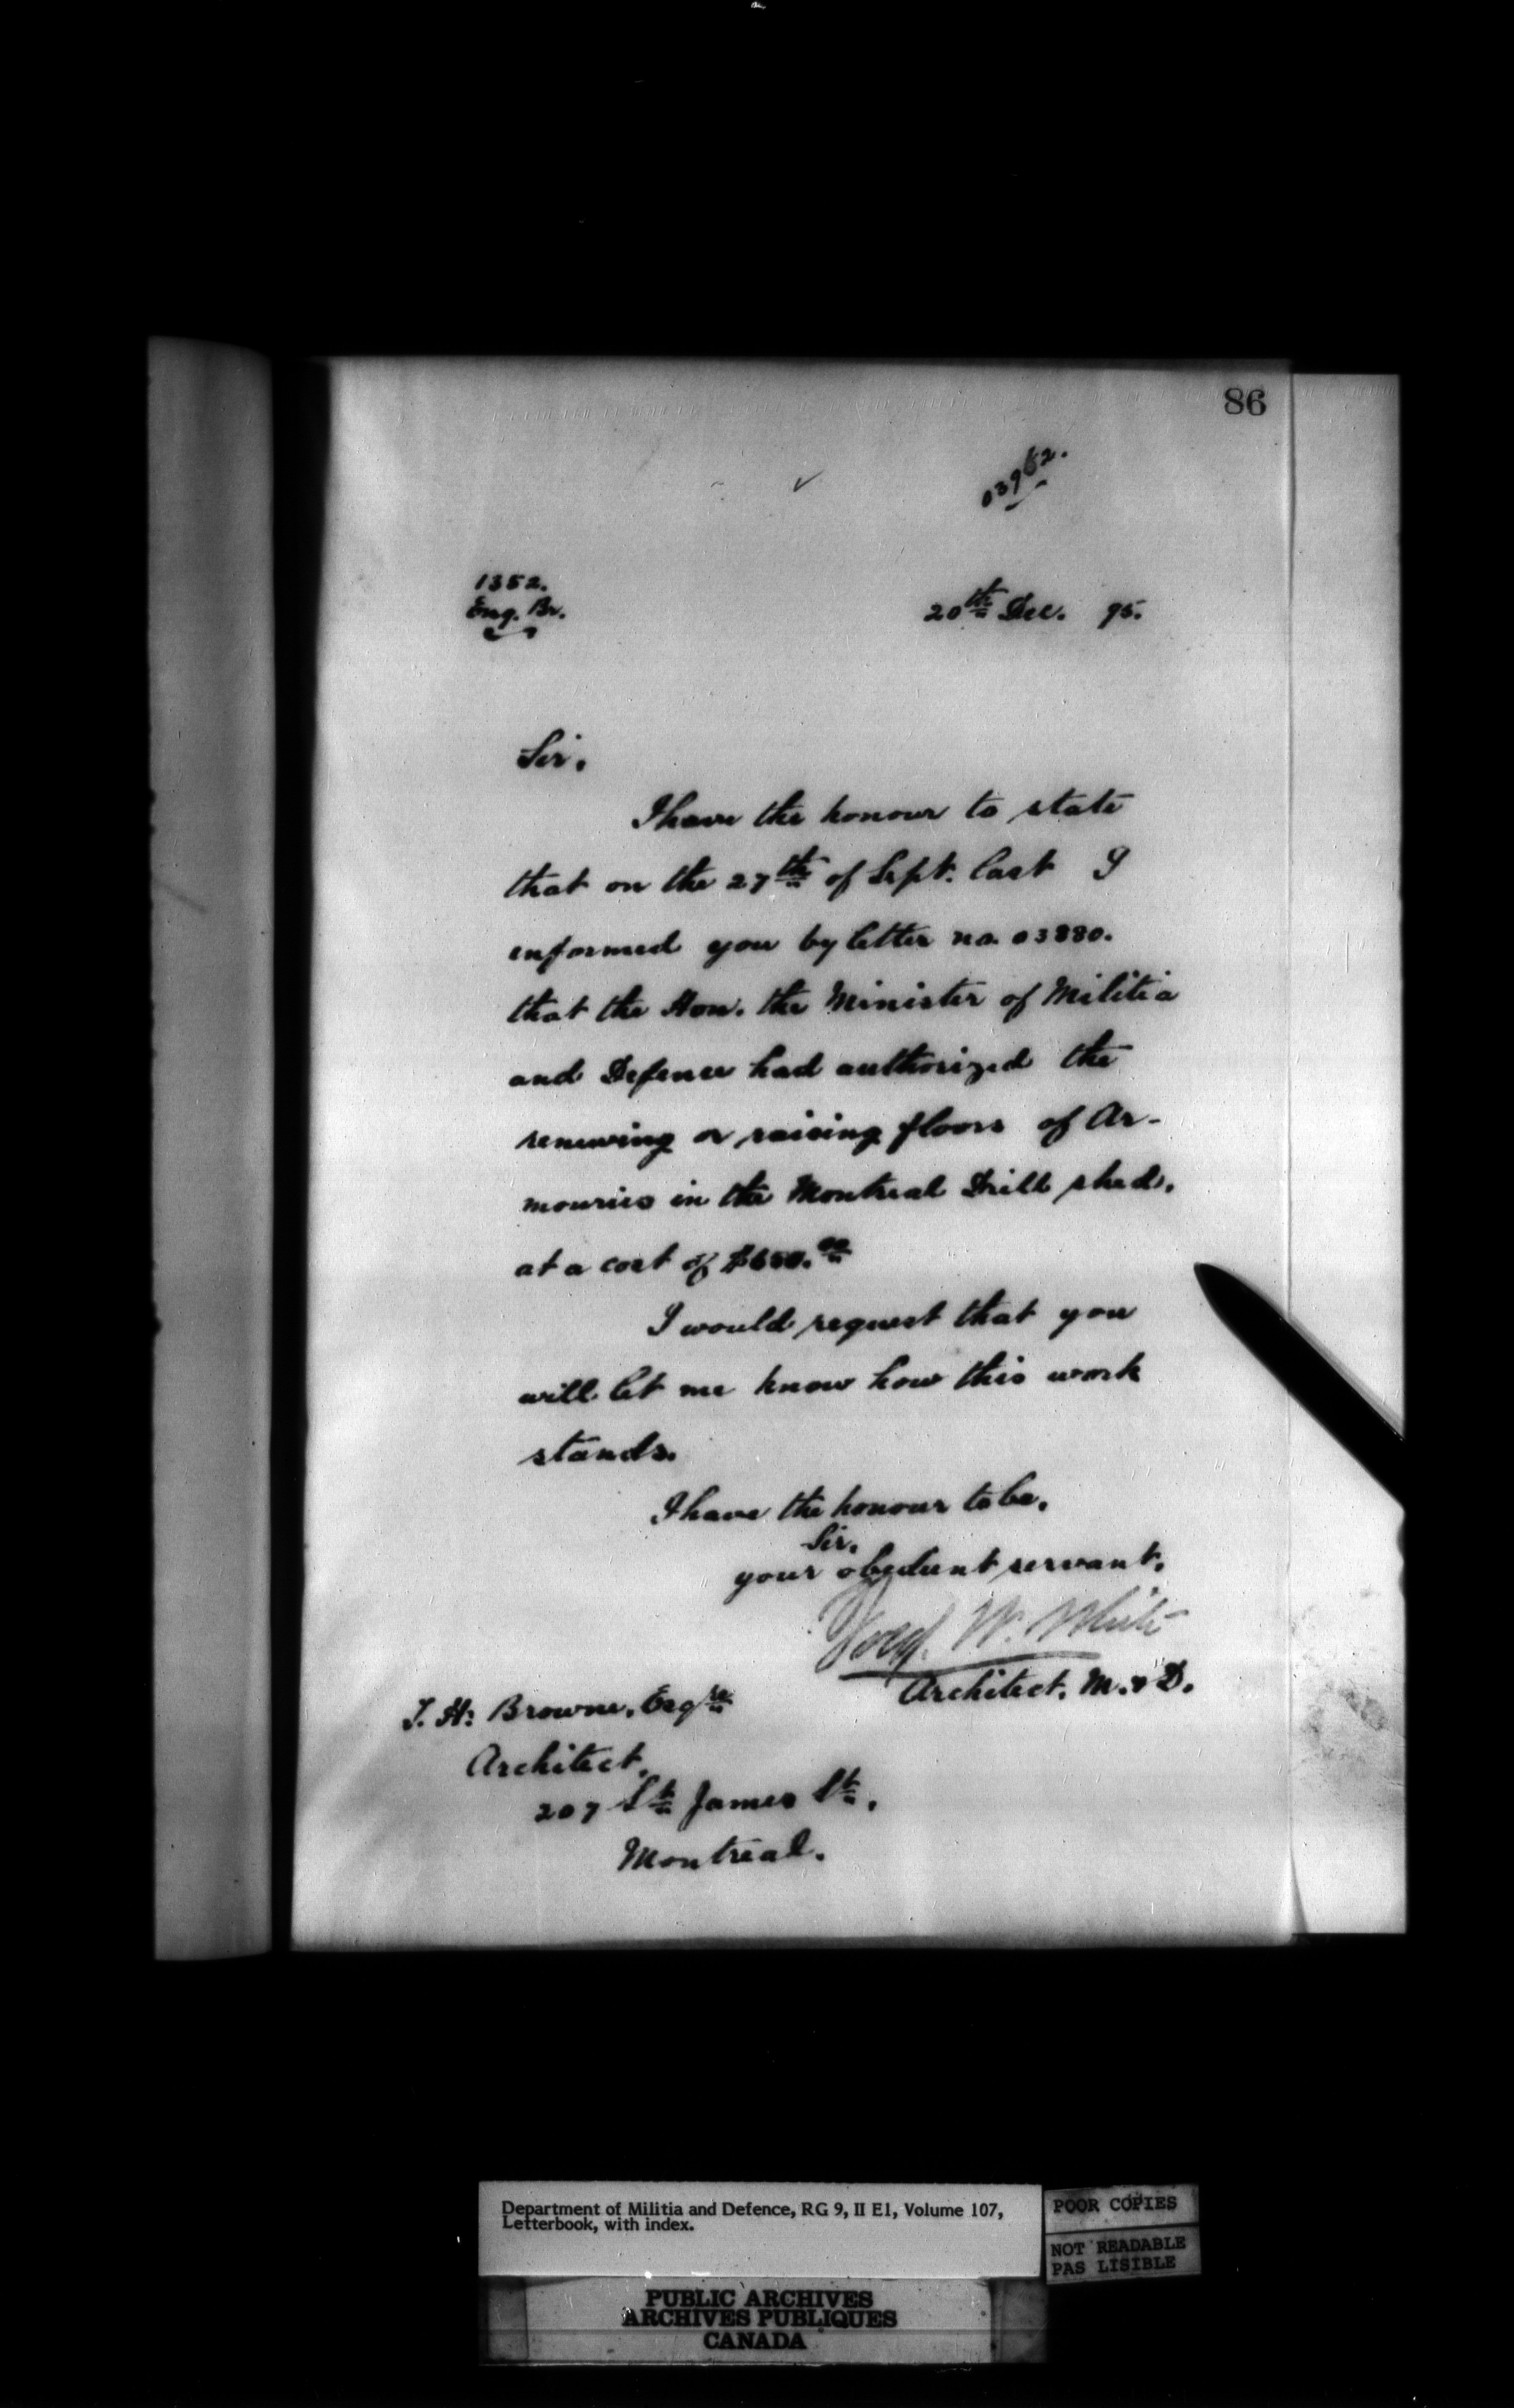 86
03962.
1352.
Eng. Br.
20th Dec. 95.
Sir,
I have the honour to state
that on the 27th of Sept. last I
informed you by letter no. 03880.
that the Hon. the Minister of Militia
and Defence had authorized the
renewing or raising floors of Ar-
mouries in the Montreal Drill shed,
at a cost of
I would request that you
will let me know how this work
stands.
I have the honour to be,
Sir,
your obedient servant,
W. White
Architect. M. & D.
J. H. Browne, Esqre
Architect,
207 St. James St.,
Montreal.
Department of Militia and Defence, RG 9, II E1, Volume 107,
Letterbook, with index.
POOR COPIES
NOT READABLE
PAS LISIBLE
PUBLIC ARCHIVES
ARCHIVES PUBLIQUES
CANADA